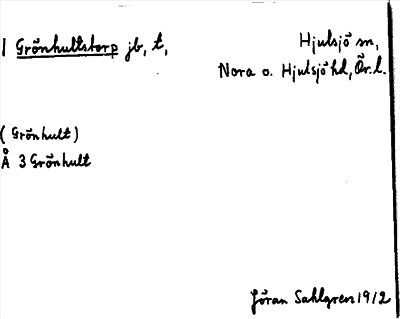 1 Grönhultstorp jb, t,
Hjulsjö sn,
Nora o. Hjulsjö hd, Ör. l.
(Grönhult)
Å 3 Grönhult
Jöran Sahlgren 1912